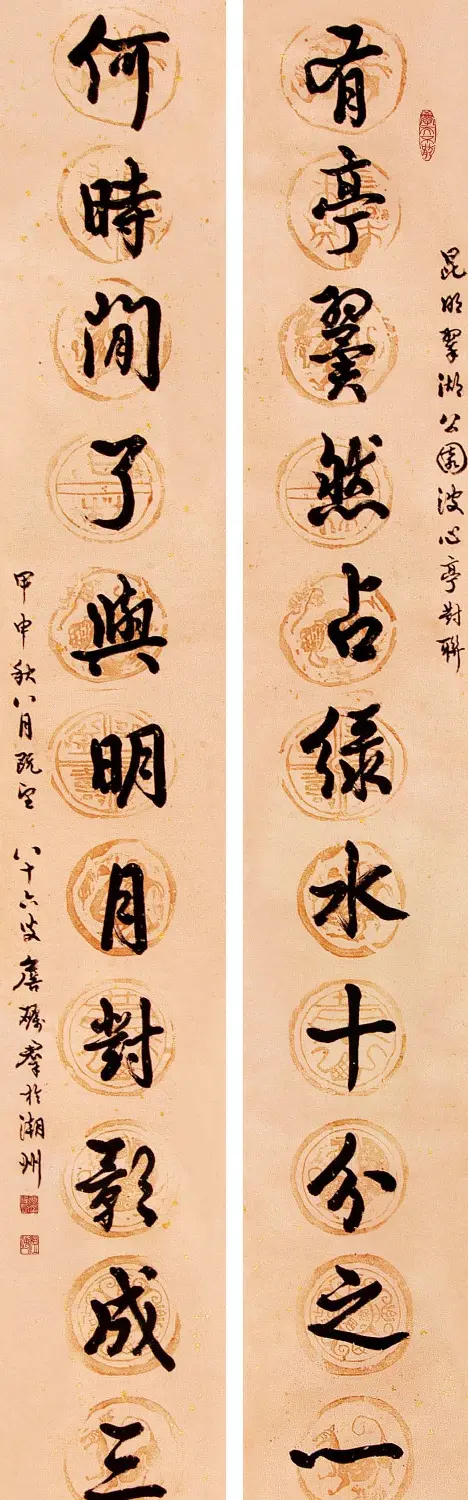 昆明翠湖公園波心亭對聯
有亭翼然占綠水十分之一
何時閒了與明月對影成三
甲申秋八月既望 八十六叟詹礪羣於潮州